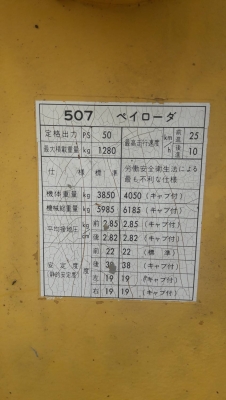 507 ペイローダ
定格出力 PS 50 最高走行速度 km/h 前進 25
最大積載重量 kg 1280 後進 10
仕様 標準 労働安全衛生法による
最も不利な仕様
機体重量 kg 3850 4050 (キャブ付)
機械総重量 kg 5985 6185 (キャブ付)
平均接地圧 kg/cm² 前 2.85 2.85 (キャブ付)
後 2.82 2.82 (キャブ付)
安定度 (静的安定度) 度 前 22 22 (標準)
後 38 38 (キャブ付)
左 19 19 (キャブ付)
右 19 19 (キャブ付)